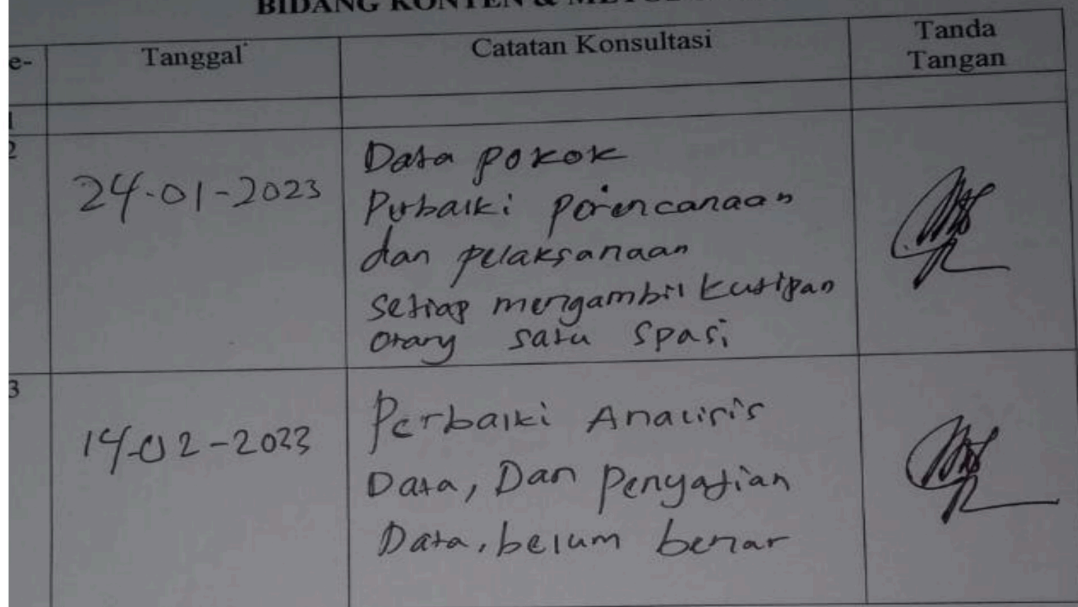 BIDANG KONTEN &
e- Tanggal Catatan Konsultasi Tanda
Tangan
1
2
24-01-2023
Data pokok
Perbaiki perencanaan
dan pelaksanaan
setiap mengambil kutipan
orang satu spasi
3
14-02-2023
Perbaiki Analisis
Data, Dan Penyajian
Data, belum benar